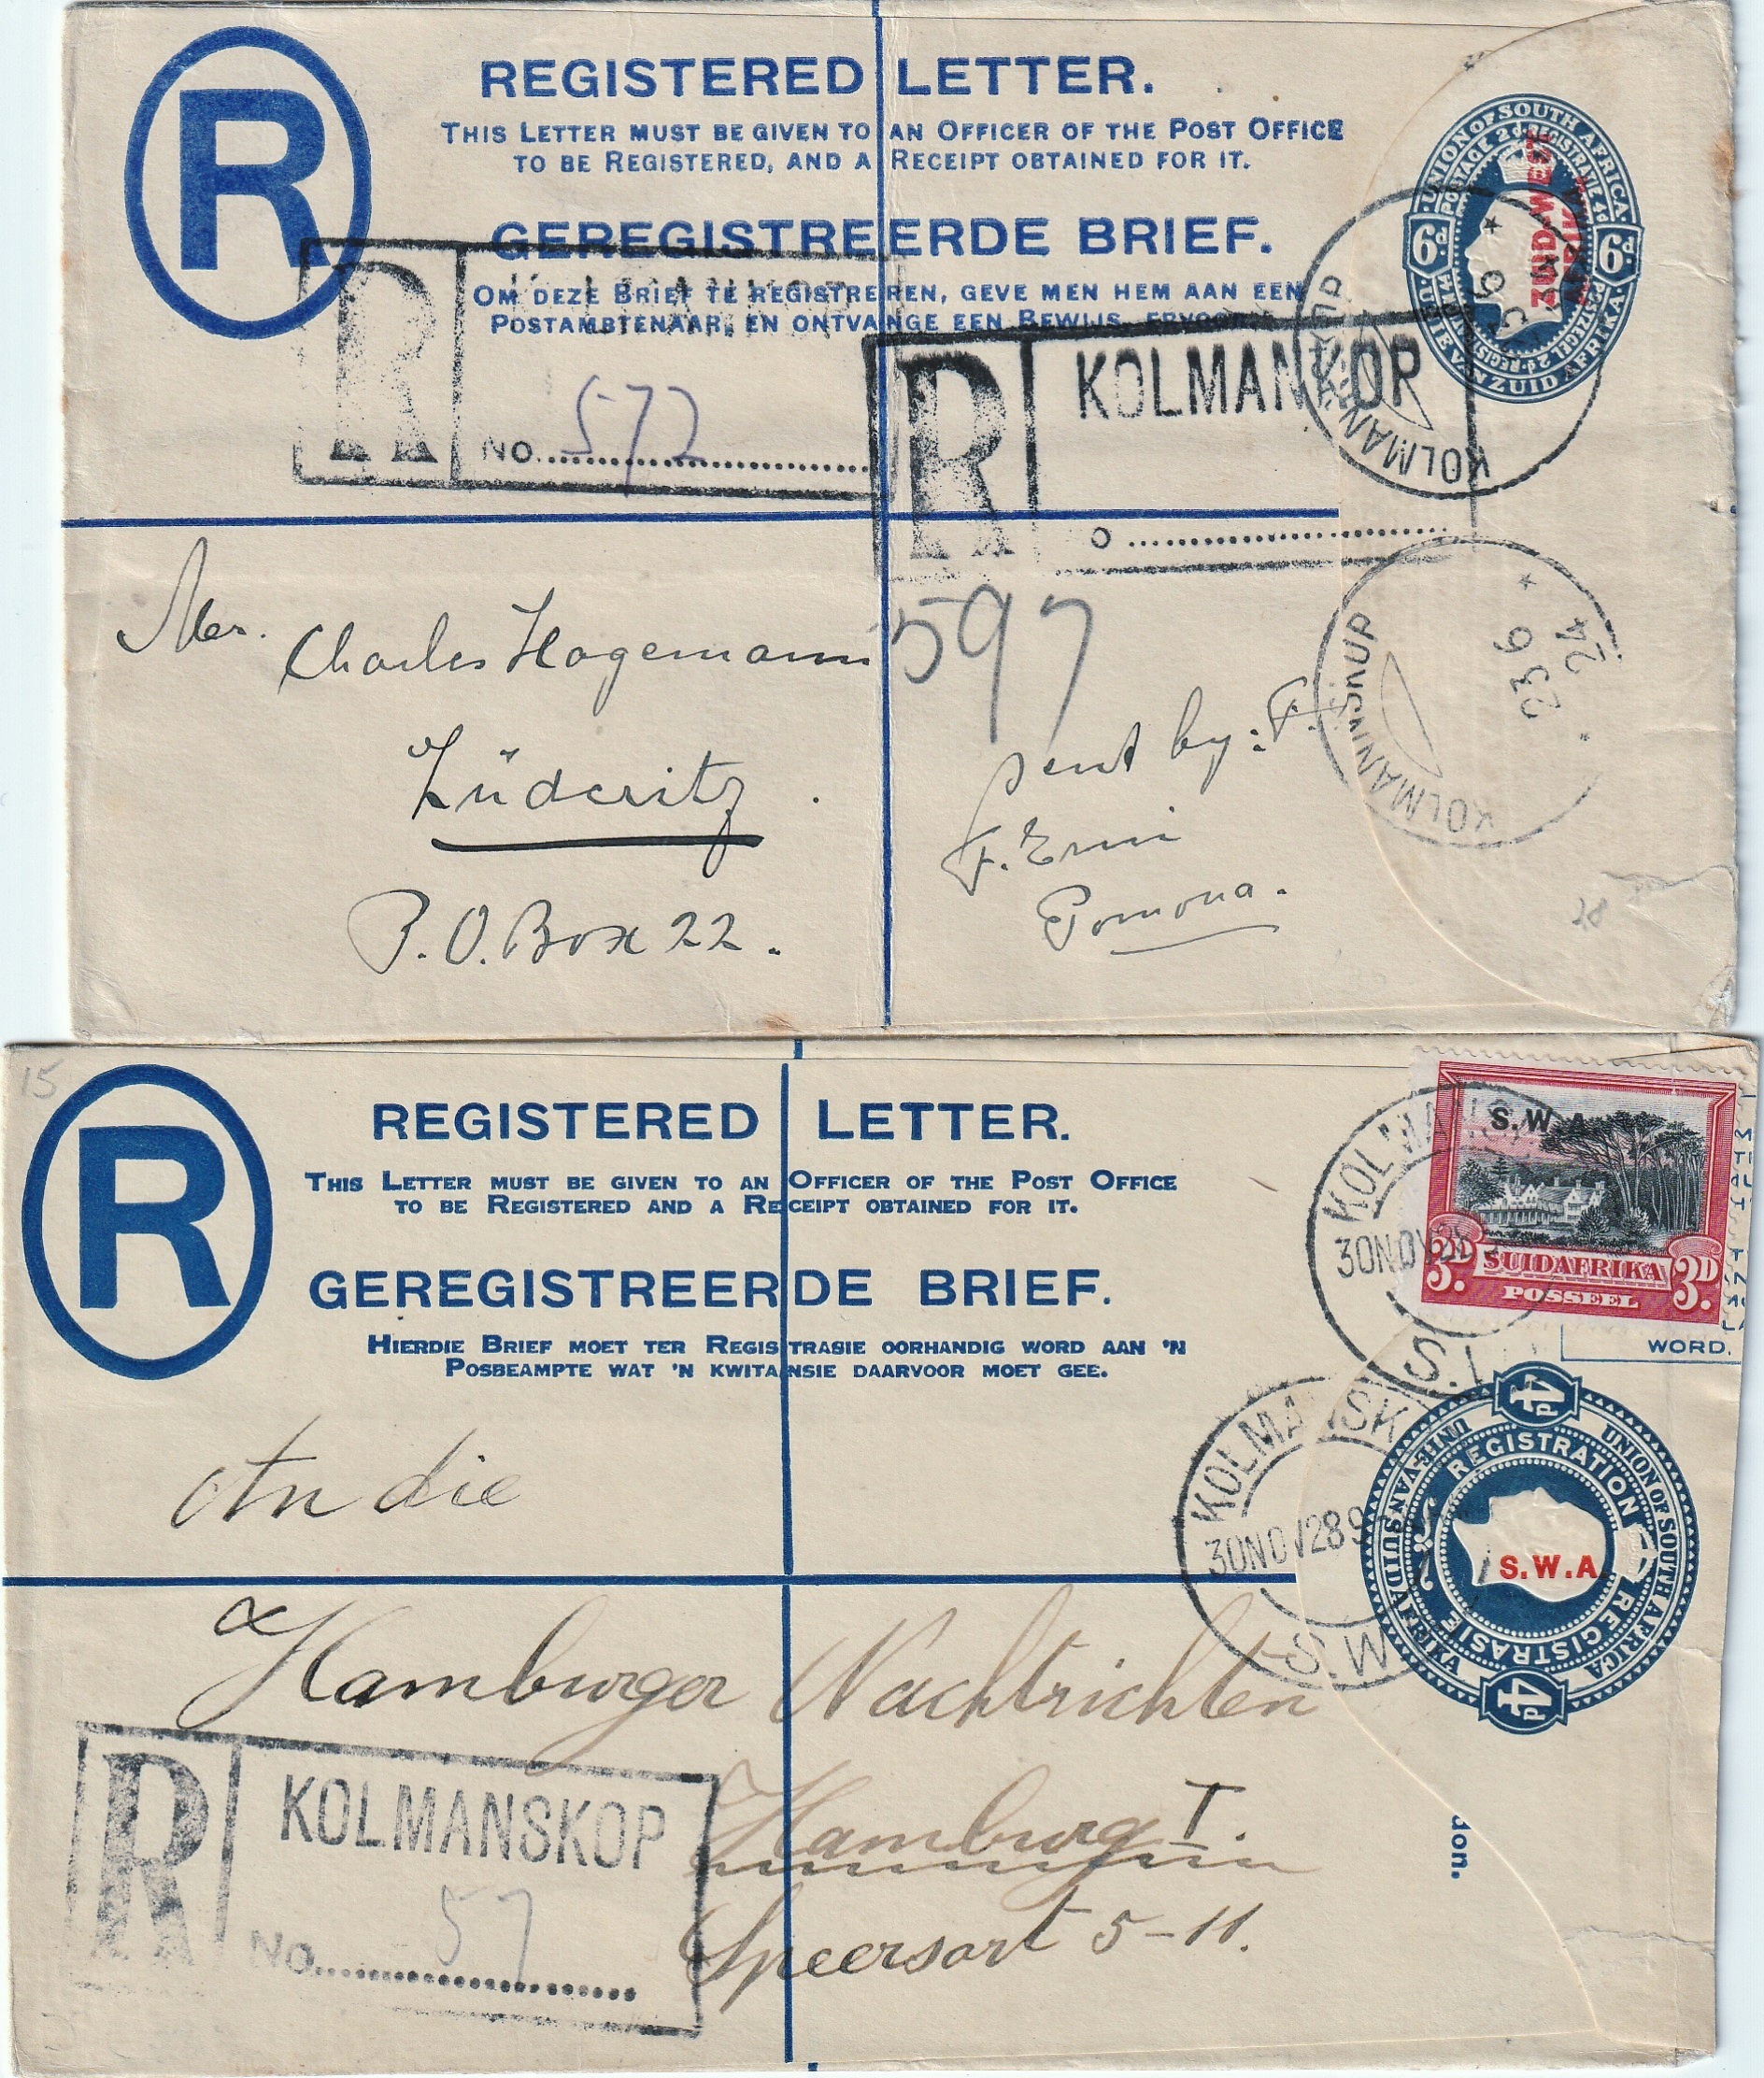 R
REGISTERED LETTER.
THIS LETTER MUST BE GIVEN TO AN OFFICER OF THE POST OFFICE
TO BE REGISTERED, AND A RECEIPT OBTAINED FOR IT.
GEREGISTREERDE BRIEF.
OM DEZE BRIEF TE REGISTREREN, GEVE MEN HEM AAN EEN
POSTAMBTENAAR, EN ONTVANGE EEN BEWIJS
UNION OF SOUTH AFRICA.
POSTAGE 2d REGISTRATN. 4d
6d. 6d.
UNIE VAN ZUID AFRIKA
ZUID-WEST
R
No. 572
R KOLMANKOP
o
597
KOLMANNSKUP
23 6
24
Mr. Charles Hagemann
Lüderitz
P.O. Box 22.
sent by: F.
F. Erni
Pomona.
28
15
R
REGISTERED LETTER.
THIS LETTER MUST BE GIVEN TO AN OFFICER OF THE POST OFFICE
TO BE REGISTERED AND A RECEIPT OBTAINED FOR IT.
GEREGISTREERDE BRIEF.
HIERDIE BRIEF MOET TER REGISTRASIE OORHANDIG WORD AAN 'N
POSBEAMPTE WAT 'N KWITANSIE DAARVOOR MOET GEE.
S.W.A.
3D. SUIDAFRIKA 3D.
POSSEEL
WORD.
30 NOV 28
KOLMANSK
30 NOV 28 9
S.W
4D
UNIE VAN SUIDAFRIKA UNION OF SOUTH AFRICA
REGISTRATION
S.W.A.
REGISTRASIE
4D
An die
Hamburger Nachrichten
Hamburg 1.
Speersort 5-11.
don.
R KOLMANSKOP
No. 57